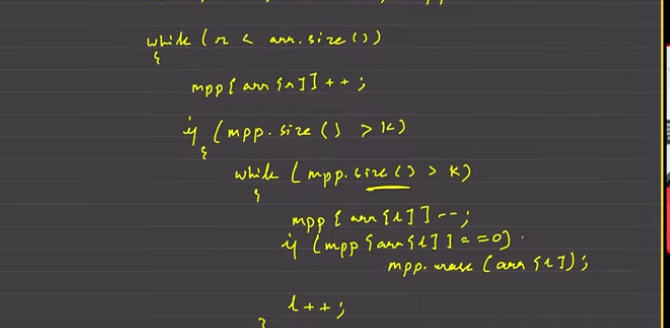 while (r < arr.size())
{
mpp[arr[r]]++;
if (mpp.size() > k)
{
while (mpp.size() > k)
{
mpp[arr[l]]--;
if (mpp[arr[l]] == 0)
mpp.erase(arr[l]);
l++;
}